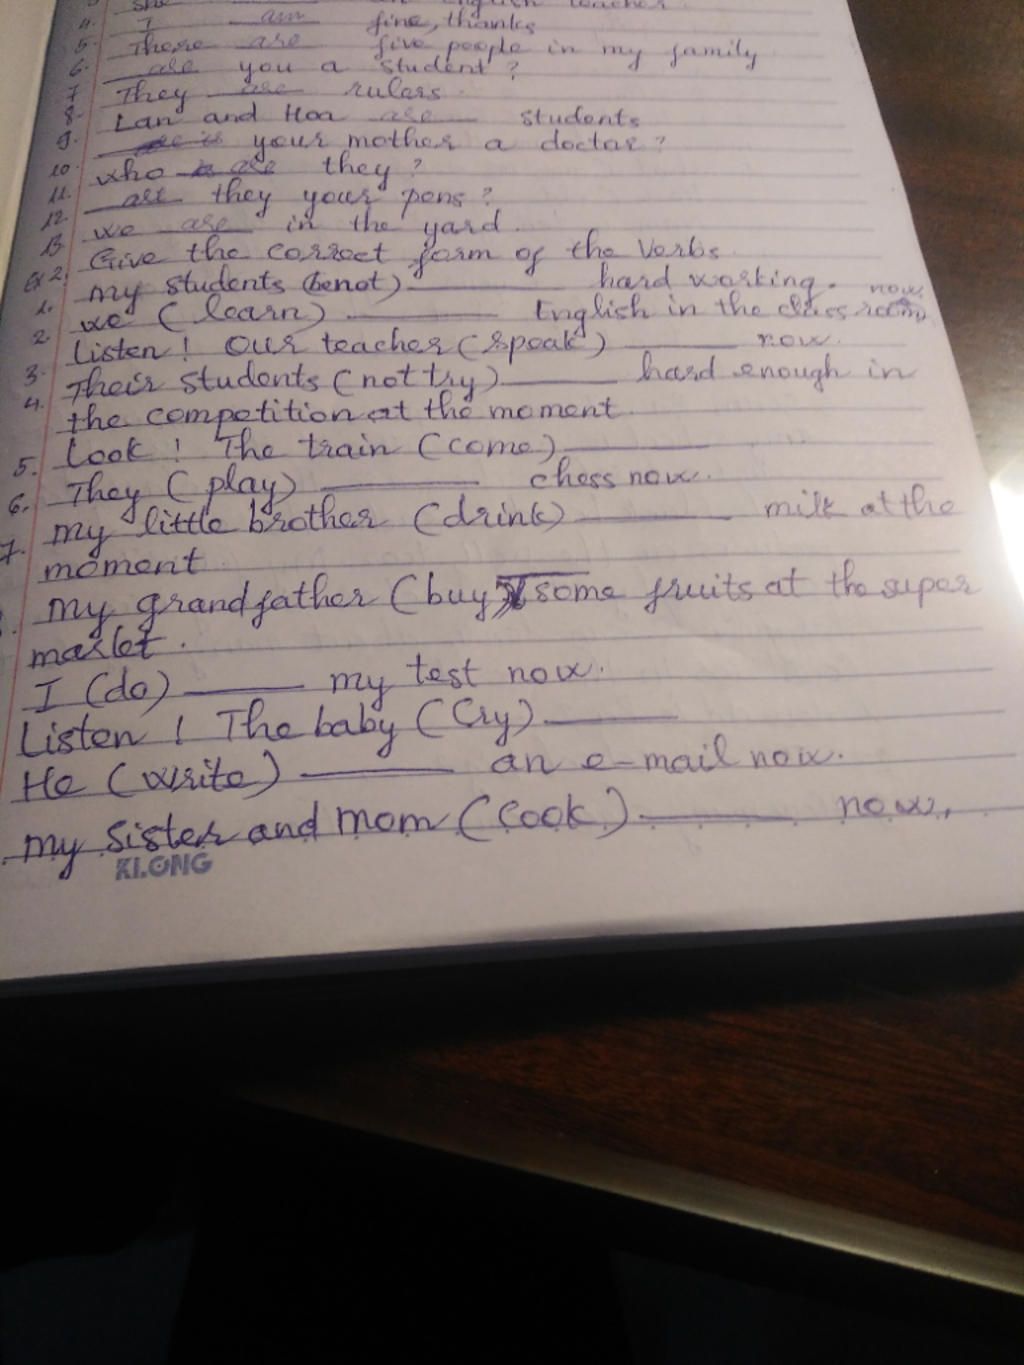 3 She an English teacher.
4. I am fine, thanks
5. There are five people in my family
6. are you a student?
7 They are rulers.
8. Lan and Hoa are students
9. is your mother a doctor?
10 who are they?
11. are they your pens?
12. we are in the yard.
13.
Ex 2. Give the correct form of the Verbs.
1. my students (be not) hard working. now.
2. we (learn) English in the class room
3. Listen! Our teacher (speak) now.
4. Their students (not try) hard enough in
the competition at the moment
5. Look! The train (come)
6. They (play) chess now.
7. my little brother (drink) milk at the
moment
my grandfather (buy) some fruits at the super
market.
I (do) my test now.
Listen! The baby (Cry)
He (write) an e-mail now.
my Sister and mom (Cook) now.
KLONG